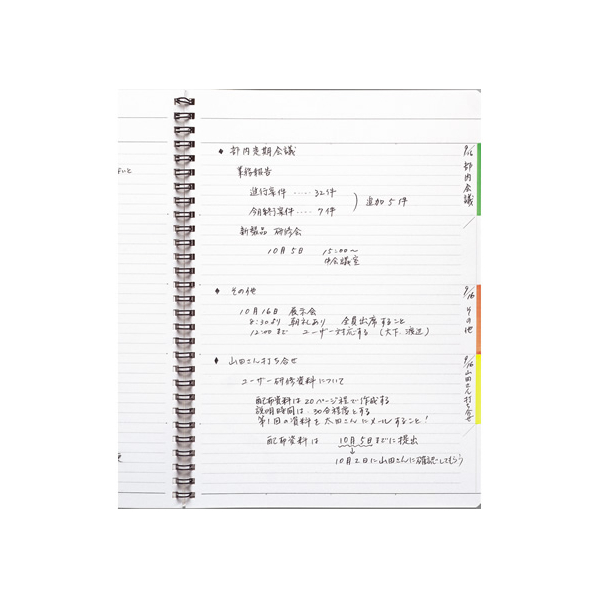 ◆ 部内定期会議
業務報告
進行案件 ‥‥ 32件
今月終了案件 ‥‥ 7件
) 追加5件
新製品 研修会
10月5日 15:00〜
中会議室
◆ その他
10月16日 展示会
8:30より 朝礼あり 全員出席すること
12:00まで ユーザー対応する (大下、渡辺)
◆ 山田さん打ち合せ
ユーザー研修資料について
配布資料は20ページ程で作成する
説明時間は、30分程度とする
第1回の資料を太田さんにメールすること!
配布資料は 10月5日までに提出
↓
10月2日に山田さんに確認してもらう
9/16 部内会議
9/16 その他
9/16 山田さん打ち合せ